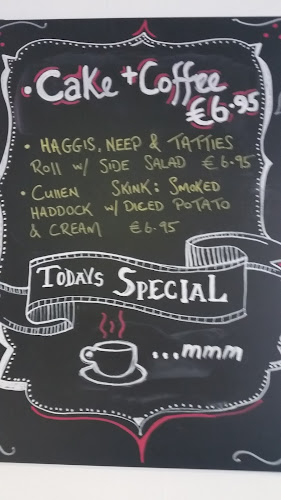 • Cake + Coffee
€6.95
• HAGGIS, NEEP & TATTIES
ROLL W/ SIDE SALAD €6.95
• CULLEN SKINK: SMOKED
HADDOCK W/ DICED POTATO
& CREAM €6.95
TODAYS SPECIAL
...mmm